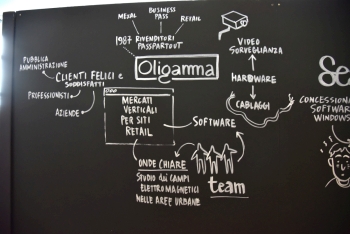 MEZAL
BUSINESS
PASS
RETAIL
1987
RIVENDITORI
PASSPARTOUT
VIDEO
SORVEGLIANZA
PUBBLICA
AMMINISTRAZIONE
Oligamma
CLIENTI FELICI e
SODDISFATTI
HARDWARE
PROFESSIONISTI
AZIENDE
CABLAGGI
MERCATI
VERTICALI
PER SITI
RETAIL
SOFTWARE
CONCESSION
SOFTWAR
WINDOWS
ONDE CHIARE
STUDIO dei CAMPI
ELETTROMAGNETICI
NELLE AREE URBANE
team